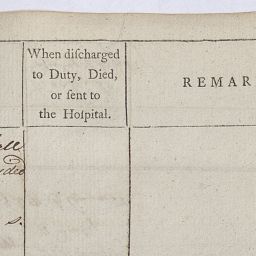 When diſcharged
to Duty, Died,
or ſent to
the Hoſpital.
REMAR
s.